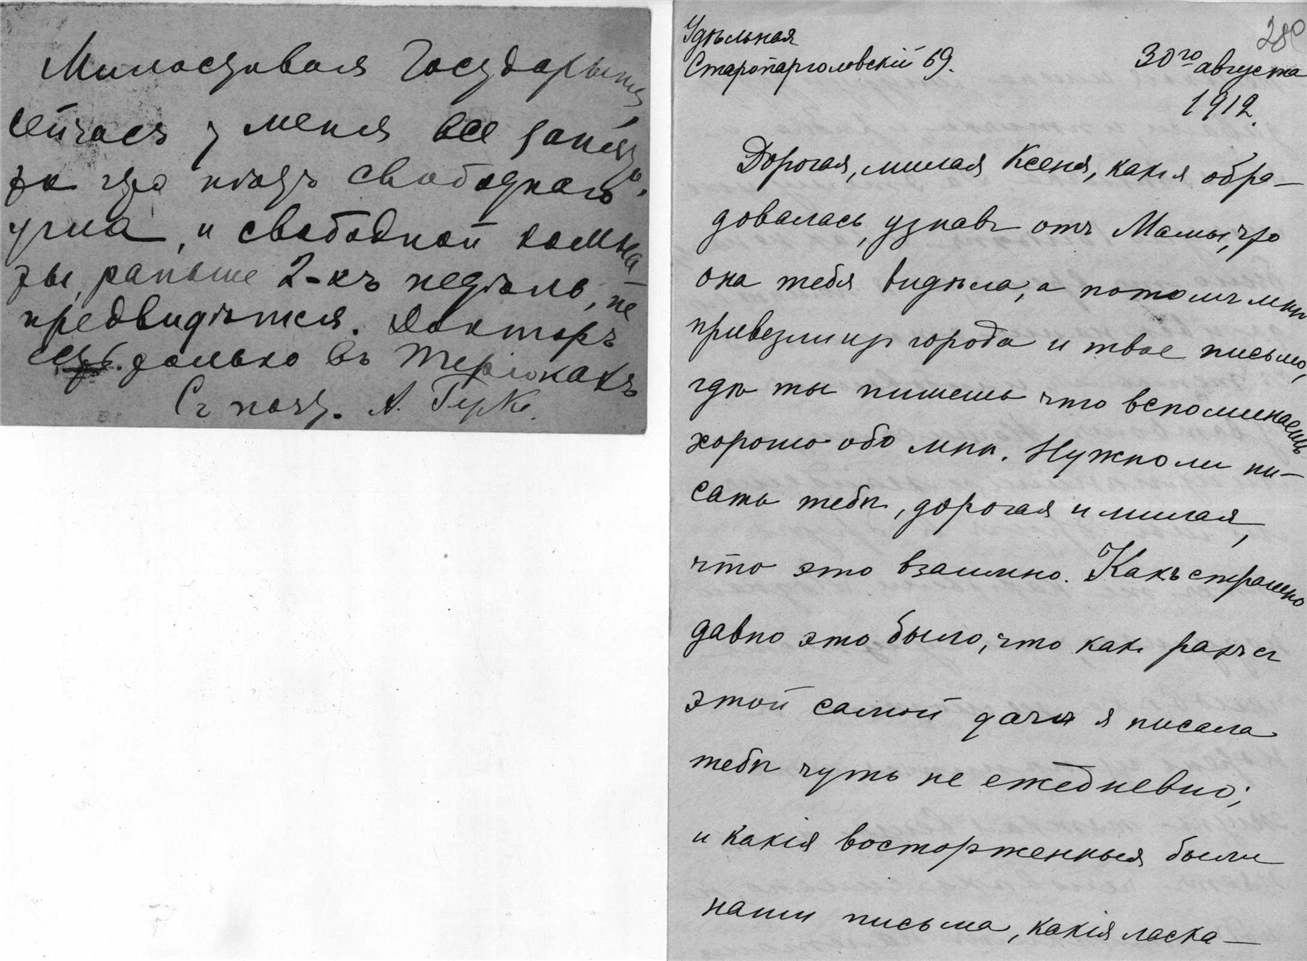 Милостивая Государыня,
сейчас у меня все занято,
такъ что нѣтъ свободнаго
угла, и свободной комна
ты, раньше 2-хъ недѣль, не
предвидится. Докторъ
есть только въ Теріокахъ
Съ почт. А. Герке.
280
Удѣльная
Старопарголовскій 69.
30го августа
1912.
Дорогая, милая Ксеня, какъ я обра–
довалась, узнавъ отъ Мамы, что
она тебя видѣла, а потомъ мнѣ
привезли изъ города и твое письмо,
гдѣ ты пишешь что вспоминаешь
хорошо обо мнѣ. Нужно ли пи–
сать тебѣ, дорогая и милая,
что это взаимно. Какъ страшно
давно это было, что какъ разъ съ
этой самой дачи я писала
тебѣ чуть не ежедневно;
и какія восторженныя были
наши письма, какія ласка–